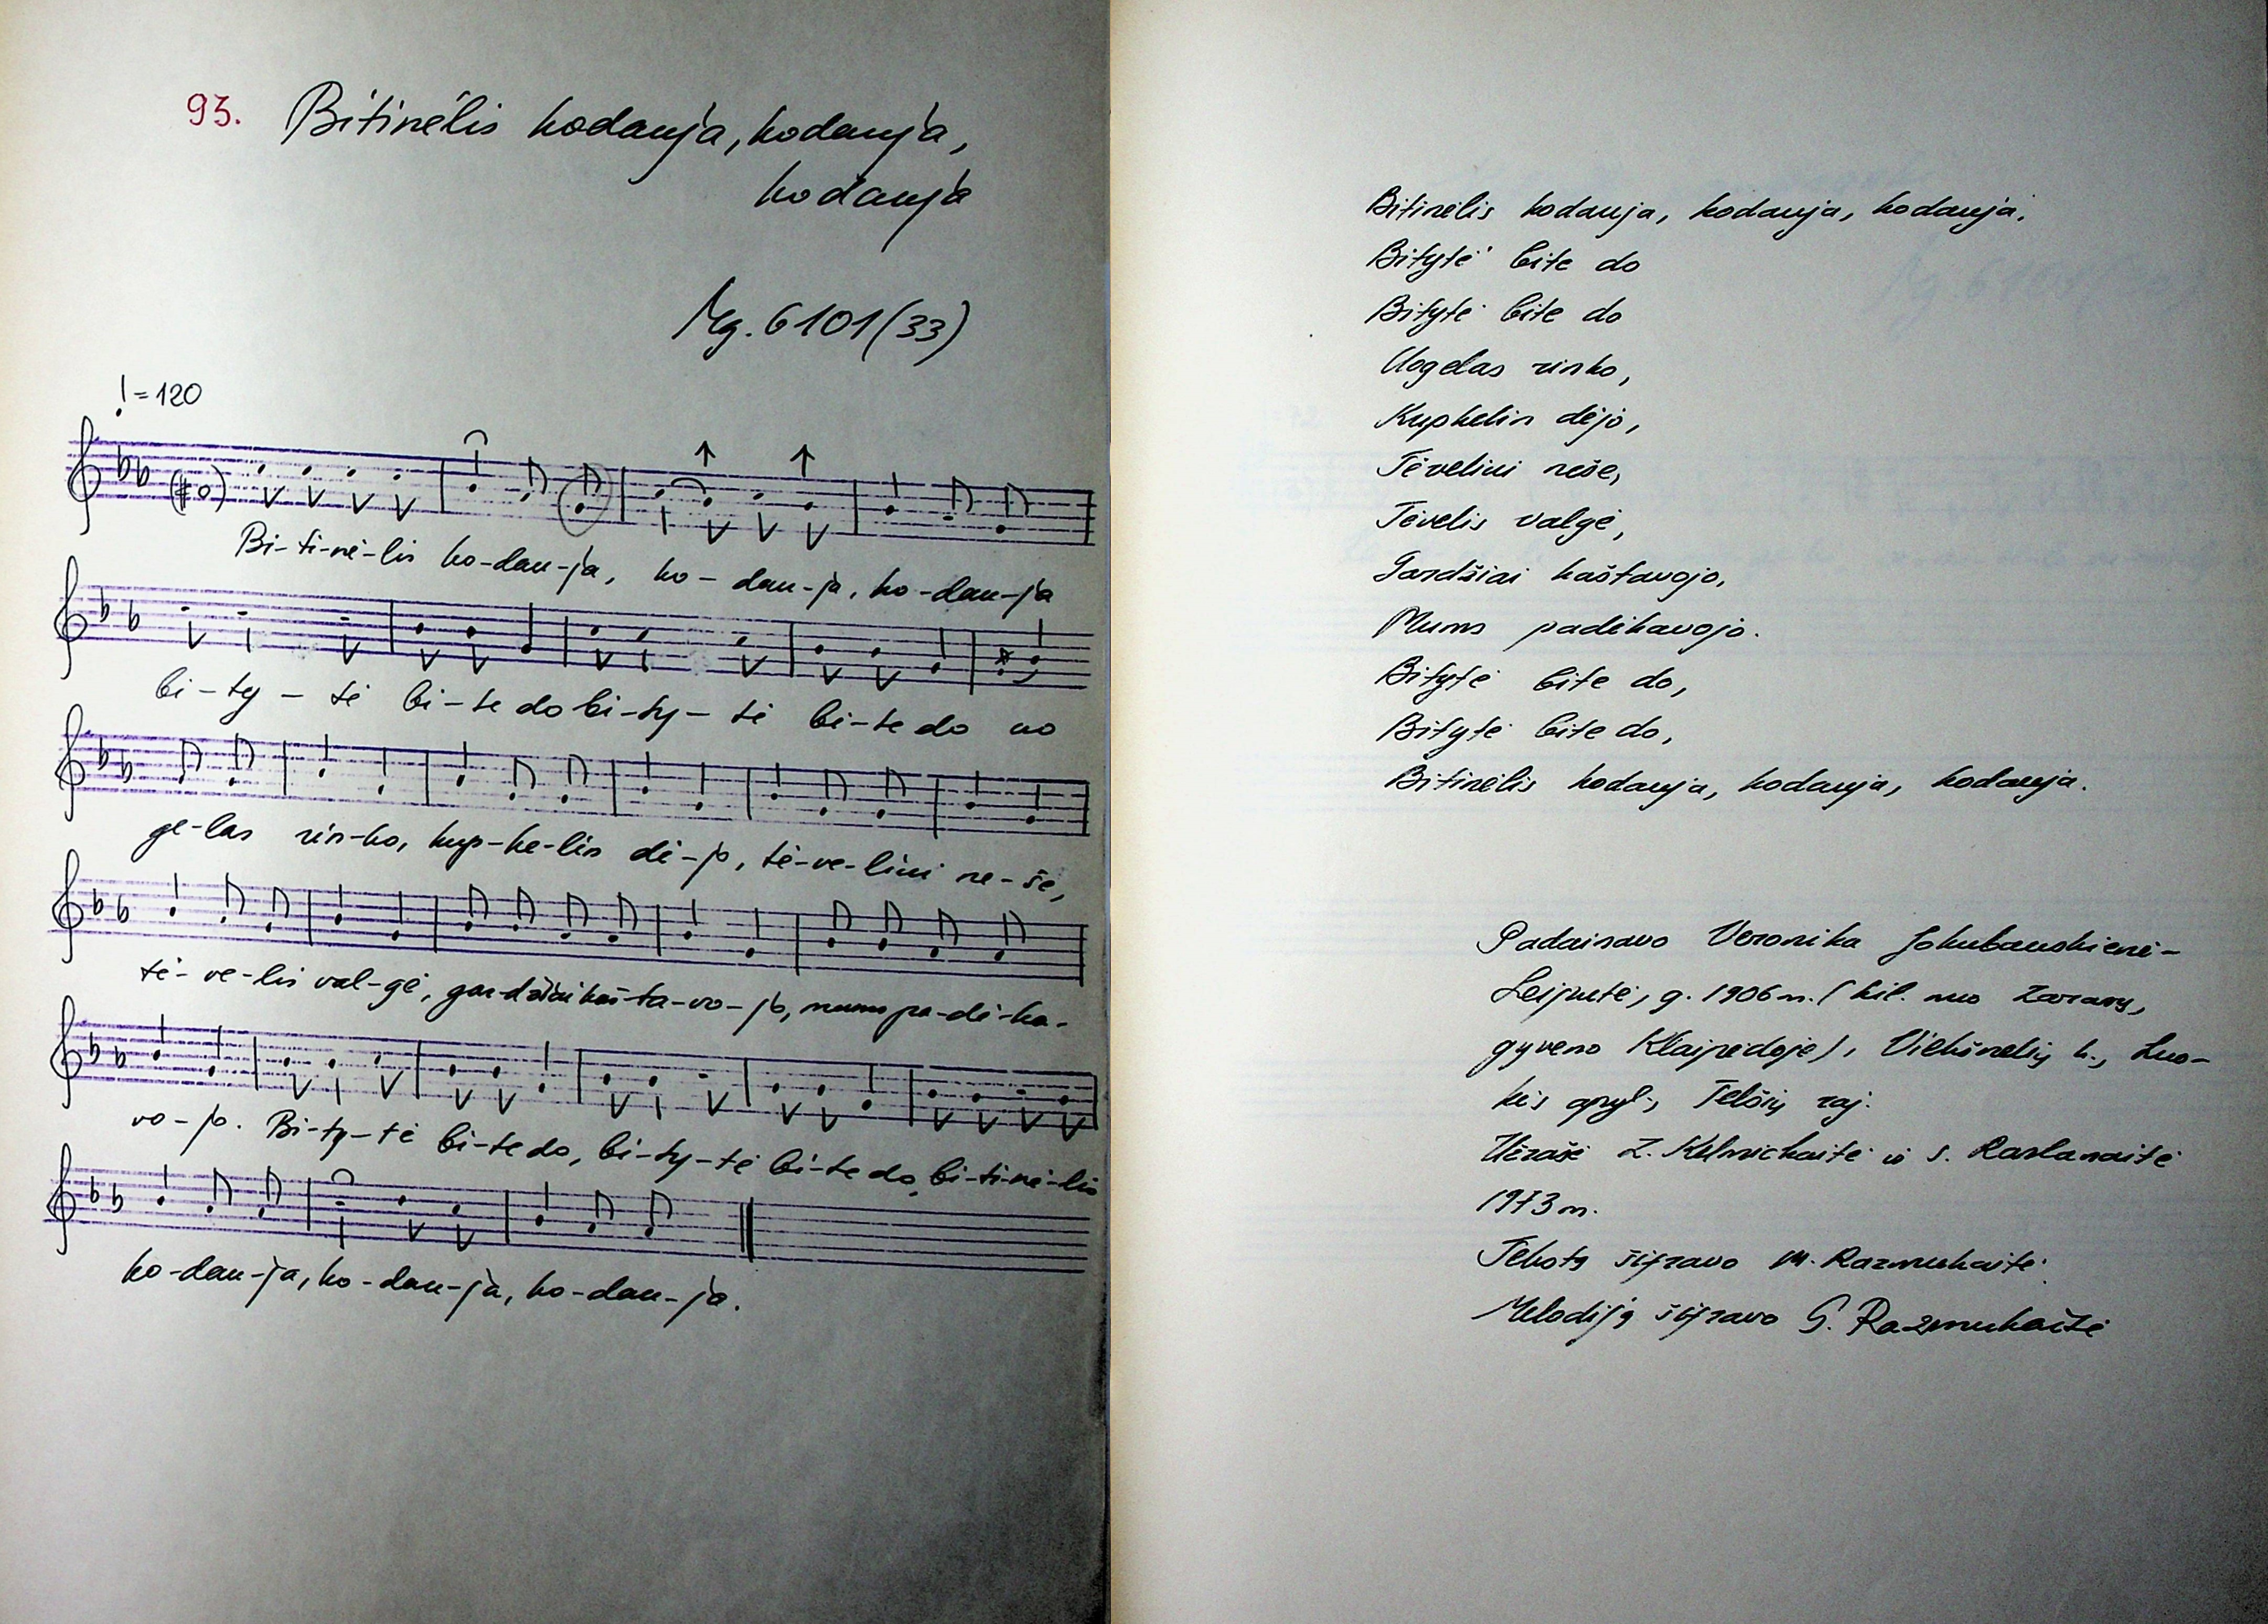 93. Bitinėlis kodauja, kodauja,
kodauja
Mg. 6101 (33)
= 120
Bi-ti-nė-lis ko-dau-ja, ko-dau-ja, ko-dau-ja
bi-ty-tė bi-te do bi-ty-tė bi-te do uo
ge-las rin-ko, kup-ke-lin dė-jo, tė-ve-liui ne-še,
tė-ve-lis val-gė, gar-džiai kaš-ta-vo-jo, mums pa-dė-ka-
vo-jo. Bi-ty-tė bi-te do, bi-ty-tė bi-te do, bi-ti-nė-lis
ko-dau-ja, ko-dau-ja, ko-dau-ja.
Bitinėlis kodauja, kodauja, kodauja.
Bitytė bite do
Bitytė bite do
Uogelas rinko,
Kupkelin dėjo,
Tėveliui neše,
Tėvelis valgė,
Gardžiai kaštavojo,
Mums padėkavojo.
Bitytė bite do,
Bitytė bite do,
Bitinėlis kodauja, kodauja, kodauja.
Padainavo Veronika Jakubauskienė-
Leiputė, g. 1906 m. (kil. nuo Zarasų,
gyveno Klaipėdoje), Viekšnelių k., Luo-
kės apyl., Telšių raj.
Užrašė Z. Kelmickaitė ir S.
1973 m.
Tekstą šifravo M. Razmukaitė
Melodiją šifravo G. Razmukaitė